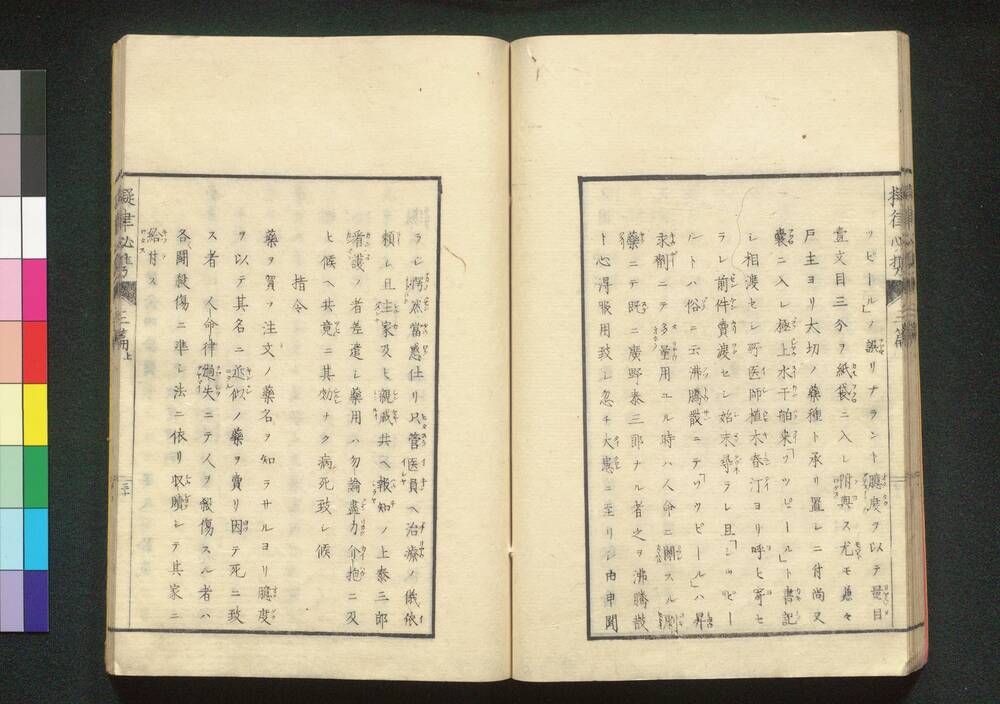 ツピール」ノ誤リナラント臆度ヲ以テ量目
壹文目三分ヲ紙袋ニ入レ附與ス尤モ兼々
戸主ヨリ大切ノ藥種ト承リ置レニ付尚又
嚢ニ入レ極上水干舶来「ウツピール」ト書記
シ相渡セシ所医師植木春汀ヨリ呼ヒ寄セ
ラレ前件賣渡セシ始末尋ラレ且「シツピー
ルトハ俗ニ云沸騰散ニテ「ウツピール」ハ昇
汞劑ニテ多量用エル時ハ人命ニ關スル劇
藥ニテ既ニ廣野泰三郎ナル者之ヲ沸騰散
ト心得服用致シ忽チ大患ニ至リシ由申聞
ラレ愕然當惑仕リ只管医員ヘ治療ノ儀依
頼シ且主家及ヒ親戚共ヘ報知ノ上泰三郎
看護ノ者差遣シ藥用ハ勿論盡力介抱ニ及
ヒ候ヘ共竟ニ其効ナク病死致シ候
指令
藥ヲ賀ヲ注文ノ藥名ヲ知ラサルヨリ臆度
ヲ以テ其名ニ近似ノ藥ヲ賣リ因テ死ニ致
ス者ハ人命律過失ニテ人ヲ殺傷スル者ハ
各鬪殺傷ニ準シ法ニ依リ収贖シテ其家ニ
給付ス
擬律必携 三篇上
三十